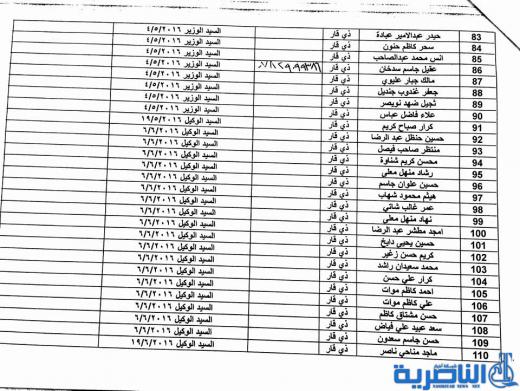 83 حيدر عبدالامير عبادة ذي قار السيد الوزير ٤/٥/٢٠١٦
84 سحر كاظم حنون ذي قار السيد الوزير ٤/٥/٢٠١٦
85 انس محمد عبدالصاحب ذي قار السيد الوزير ٤/٥/٢٠١٦
86 عقيل جاسم سدخان ذي قار السيد الوزير ٤/٥/٢٠١٦
87 مالك جبار عليوي ذي قار السيد الوزير ٤/٥/٢٠١٦
88 جعفر غندوب جنديل ذي قار السيد الوزير ٤/٥/٢٠١٦
89 ثجيل ضهد نويصر ذي قار السيد الوزير ٤/٥/٢٠١٦
90 علاء فاضل عباس ذي قار السيد الوزير ٤/٥/٢٠١٦
91 كرار صباح كريم ذي قار السيد الوكيل ١٩/٥/٢٠١٦
92 حسين حنظل عبد الرضا ذي قار السيد الوكيل ٦/٦/٢٠١٦
93 منتظر صاحب فيصل ذي قار السيد الوكيل ٦/٦/٢٠١٦
94 محسن كريم شناوة ذي قار السيد الوكيل ٦/٦/٢٠١٦
95 رشاد منهل معلي ذي قار السيد الوكيل ٦/٦/٢٠١٦
96 حسين علوان جاسم ذي قار السيد الوكيل ٦/٦/٢٠١٦
97 هيثم محمود شهاب ذي قار السيد الوكيل ٦/٦/٢٠١٦
98 عمر غالب شاتي ذي قار السيد الوكيل ٦/٦/٢٠١٦
99 نهاد منهل معلي ذي قار السيد الوكيل ٦/٦/٢٠١٦
100 امجد مطشر عبد الرضا ذي قار السيد الوكيل ٦/٦/٢٠١٦
101 حسين يحيى دايخ ذي قار السيد الوكيل ٦/٦/٢٠١٦
102 كريم حسن زغير ذي قار السيد الوكيل ٦/٦/٢٠١٦
103 محمد سعيدان راشد ذي قار السيد الوكيل ٦/٦/٢٠١٦
104 كرار علي حسن ذي قار السيد الوكيل ٦/٦/٢٠١٦
105 احمد كاظم موات ذي قار السيد الوكيل ٦/٦/٢٠١٦
106 علي كاظم موات ذي قار السيد الوكيل ٦/٦/٢٠١٦
107 حسن مشتاق كاظم ذي قار السيد الوكيل ٦/٦/٢٠١٦
108 سعد عبيد علي فياض ذي قار السيد الوكيل ٦/٦/٢٠١٦
109 حسن جاسم سعدون ذي قار السيد الوكيل ٦/٦/٢٠١٦
110 ماجد مناحي ناصر ذي قار السيد الوكيل ١٩/٦/٢٠١٦
شبكة اخبار
الناصرية
NASIRIYAH NEWS NET